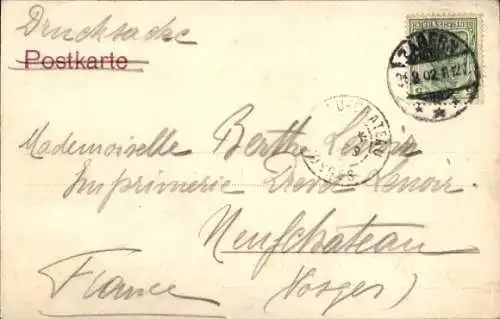 Drucksache
Postkarte
ZABERN
9.02.11-12
NEUFCHATEAU
VOSGES
Mademoiselle Berthe Lenoir
Imprimerie Lenoir
Neufchateau
France (Vosges)